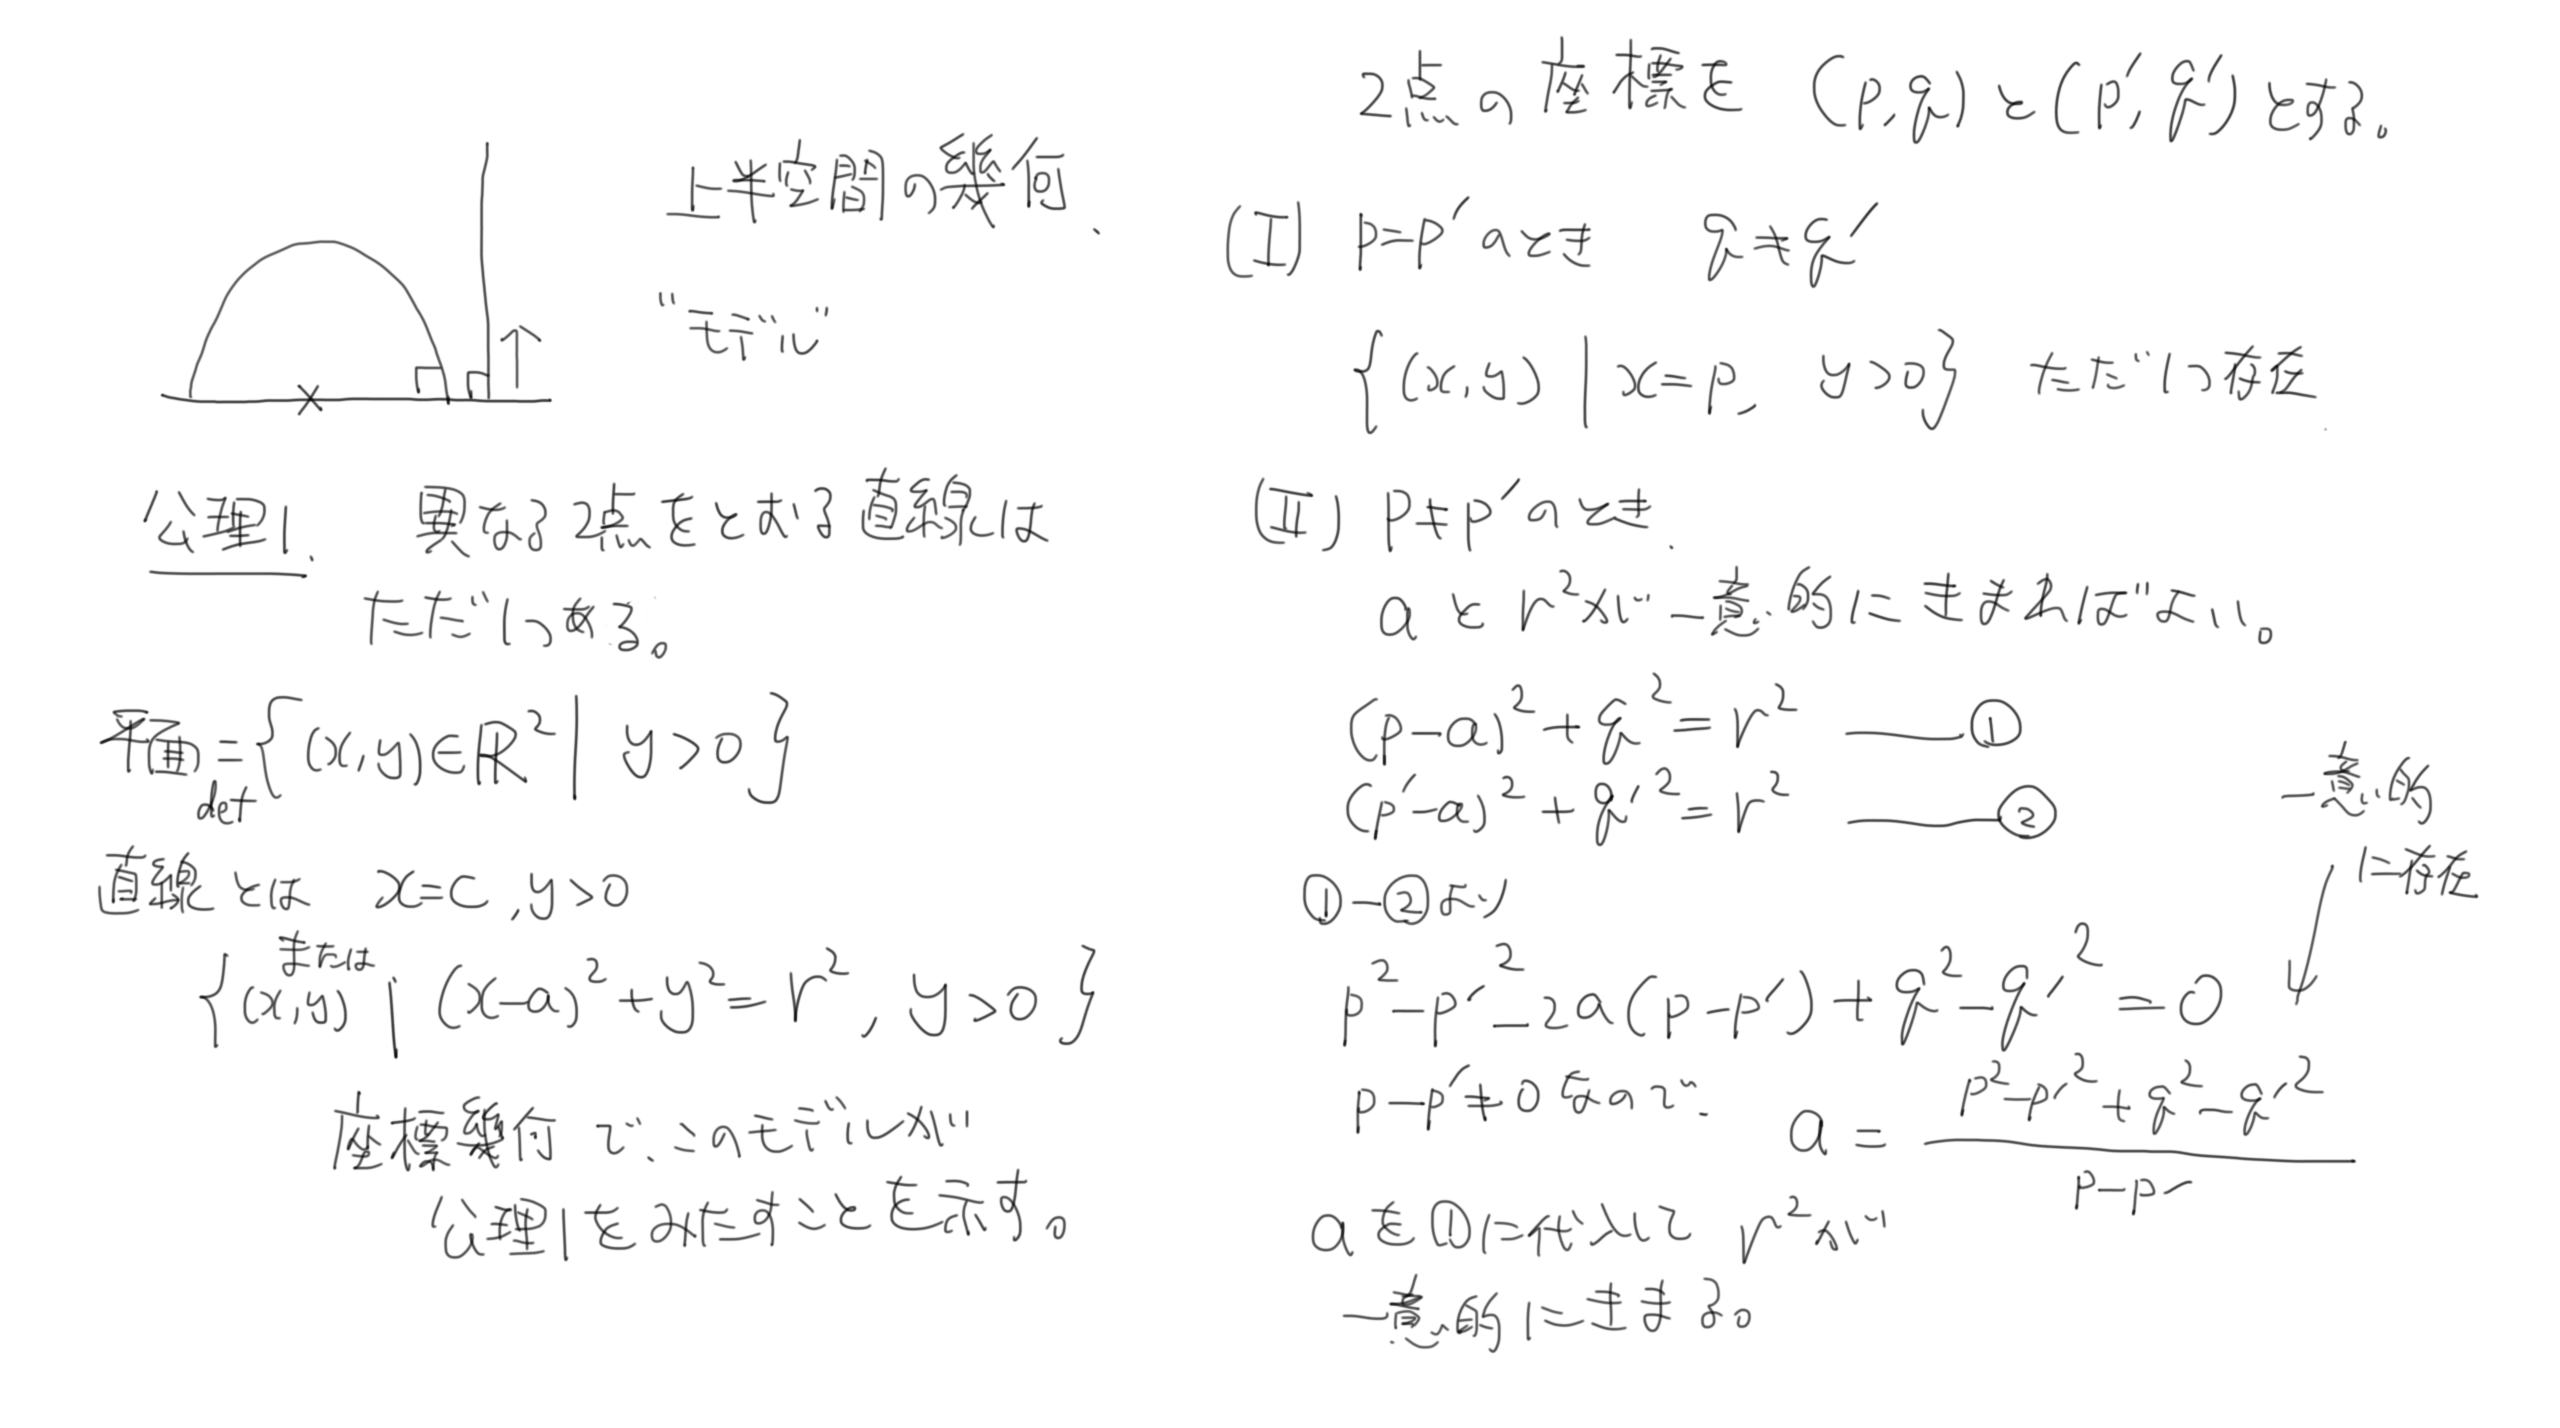 上半空間の幾何.
"モデル"
公理1. 異なる2点をとおる直線は
ただ1つある。
平面 =def {(x,y)∈ℝ² | y>0}
直線とは x=c, y>0
または
{(x,y) | (x-a)²+y²=r², y>0}
座標幾何で、このモデルが
公理1をみたすことを示す。
2点の座標を (p,q)と(p′,q′)とする。
(I) p=p′のとき q≠q′
{(x,y) | x=p, y>0} ただ1つ存在
(II) p≠p′のとき.
aとr²が一意的にきまればよい。
(p-a)²+q²=r² ——①
(p′-a)²+q′²=r² ——②
①-②より
p²-p′²-2a(p-p′)+q²-q′²=0
一意的
に存在
p-p′≠0なので. a = (p²-p′²+q²-q′²)/(p-p′)
aを①に代入して r²が
一意的にきまる。